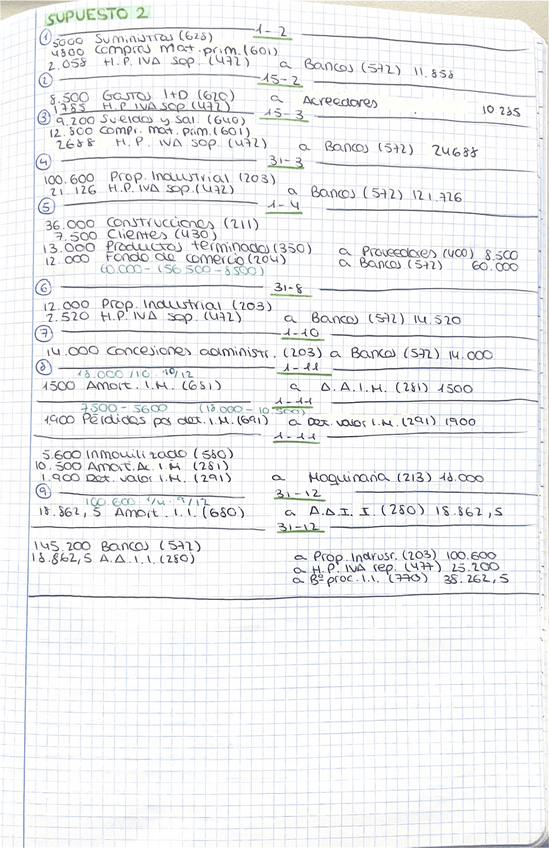 SUPUESTO 2
1-2
① 5000 Suministros (628)
4800 Compras Mat. prim. (601)
2.058 H.P. IVA Sop. (472) a Bancos (572) 11.858
② 15-2
8.500 Gastos I+D (620) a Acreedores 10285
1785 H.P. IVA Sop. (472)
③ 15-3
9.200 Sueldos y sal. (640)
12.800 Compr. mat. prim. (601)
2688 H.P. IVA Sop. (472) a Bancos (572) 24688
④ 31-3
100.600 Prop. Industrial (203)
21.126 H.P. IVA Sop. (472) a Bancos (572) 121.726
⑤ 1-4
36.000 Construcciones (211)
7.500 Clientes (430)
13.000 Productos terminados (350) a Proveedores (400) 8.500
12.000 Fondo de comercio (204) a Bancos (572) 60.000
60.000 - (56.500 - 8500)
⑥ 31-8
12.000 Prop. Industrial (203)
2.520 H.P. IVA Sop. (472) a Bancos (572) 14.520
⑦ 1-10
14.000 Concesiones administr. (203) a Bancos (572) 14.000
⑧ 1-11
18.000/10 · 10/12
1500 Amort. I.M. (681) a A.A.I.M. (281) 1500
1-11
7500 - 5600 (18.000 - 10.500)
1900 Pérdidas por det. I.M. (691) a Det. valor I.M. (291) 1900
1-11
5.600 Inmovilizado (580)
10.500 Amort. Ac. I.M (281)
1.900 Det. valor I.M. (291) a Maquinaria (213) 18.000
⑨ 31-12
100.600 · 1/4 · 9/12
18.862,5 Amort. I.I. (680) a A.A I. I. (280) 18.862,5
31-12
145.200 Bancos (572)
18.862,5 A.A.I.I. (280) a Prop. Indrusr. (203) 100.600
a H.P. IVA rep. (477) 25.200
a Bº proc. I.I. (770) 38.262,5